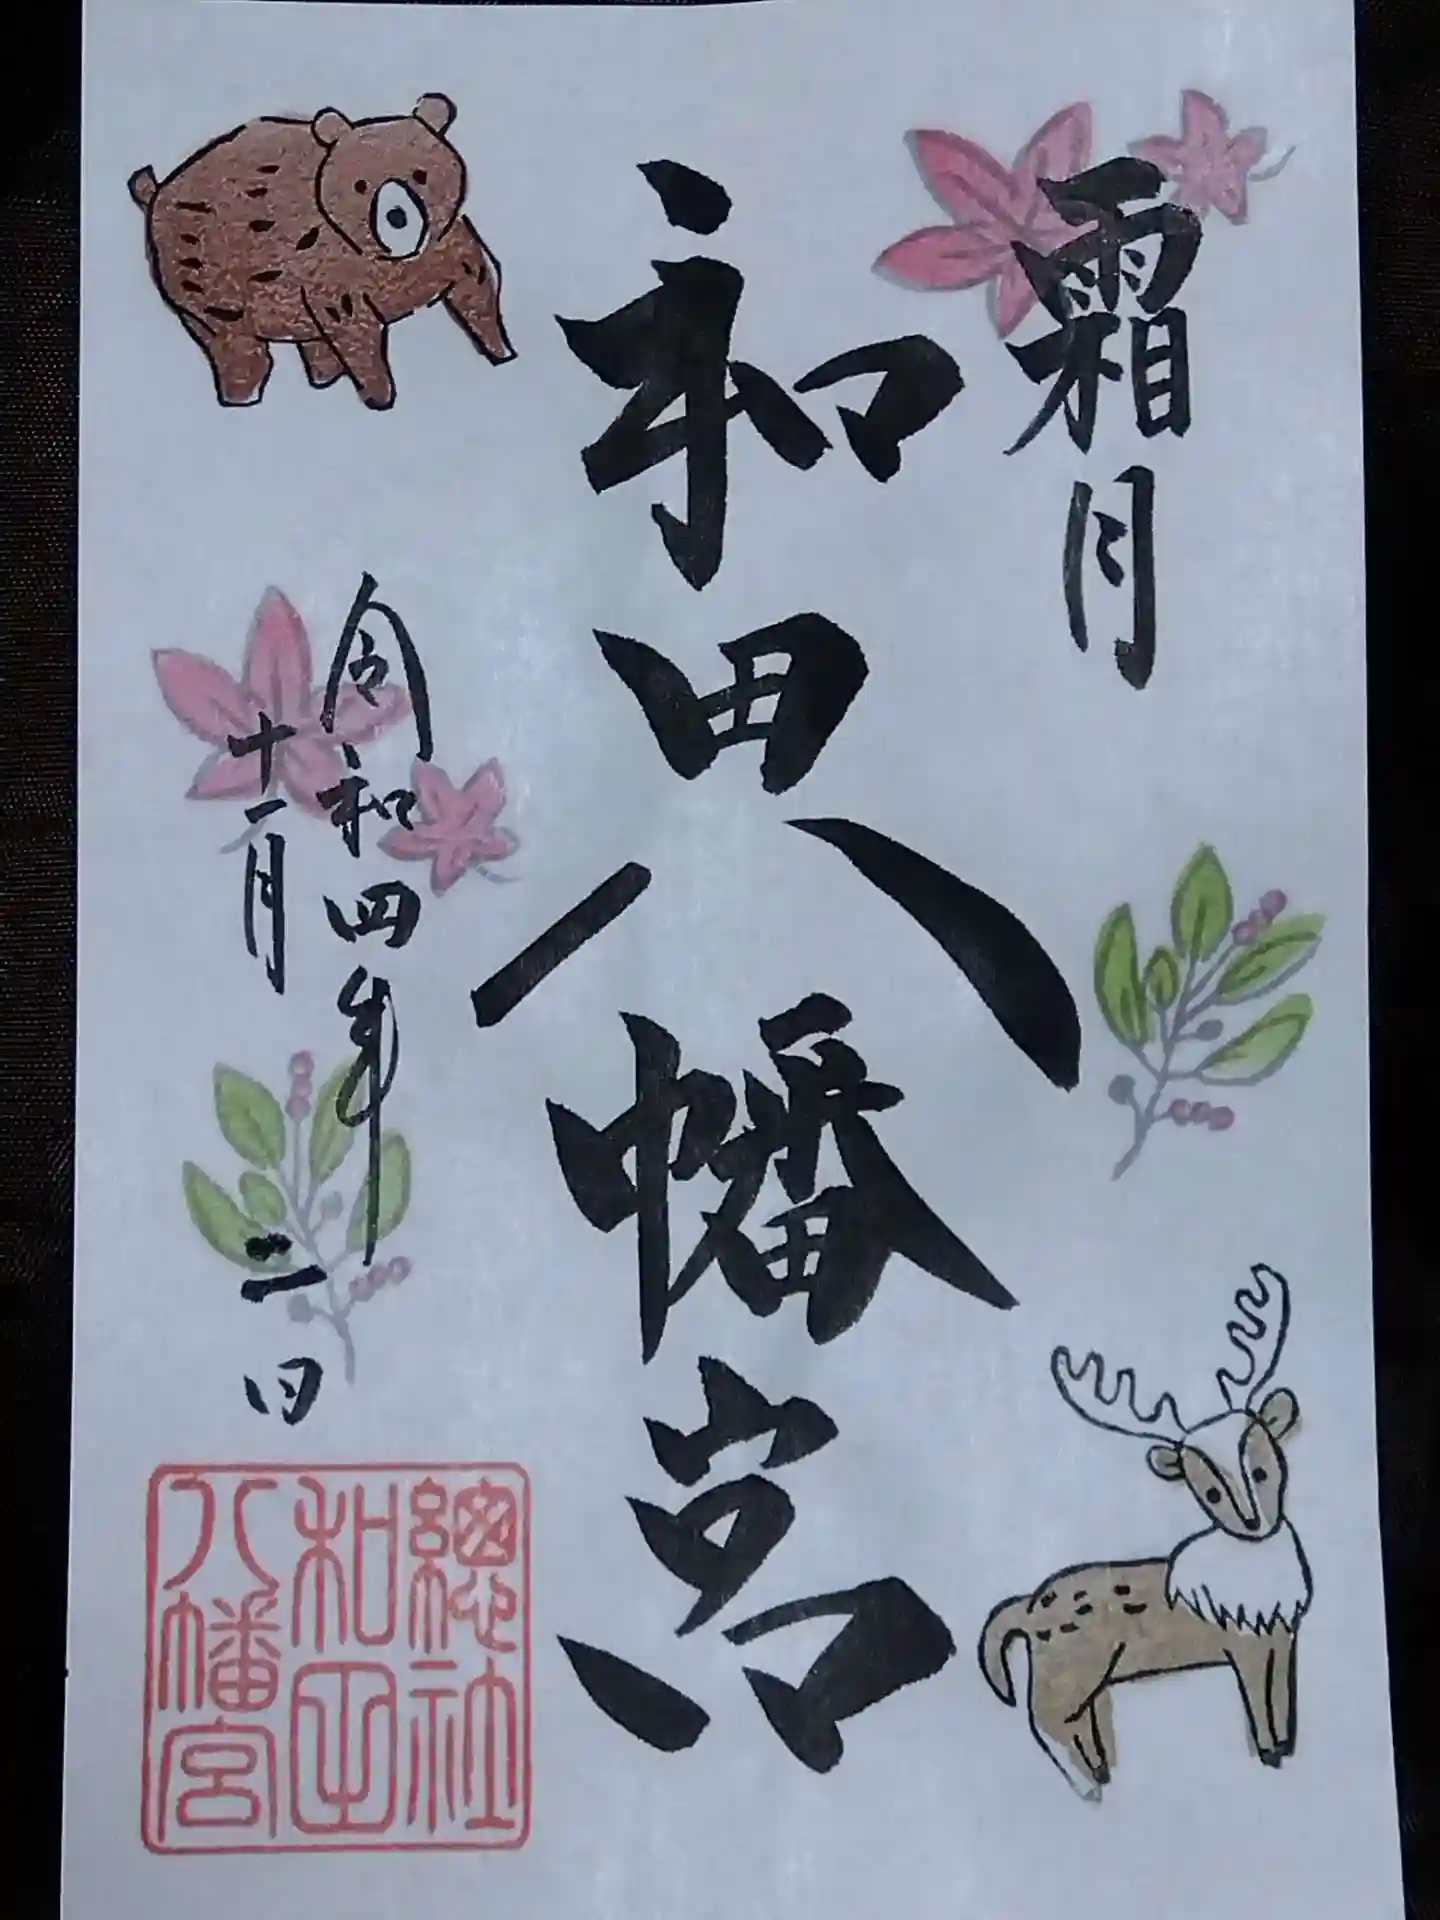 霜月
和田八幡宮
令和四年
十一月
二日
總社
和田
八幡宮